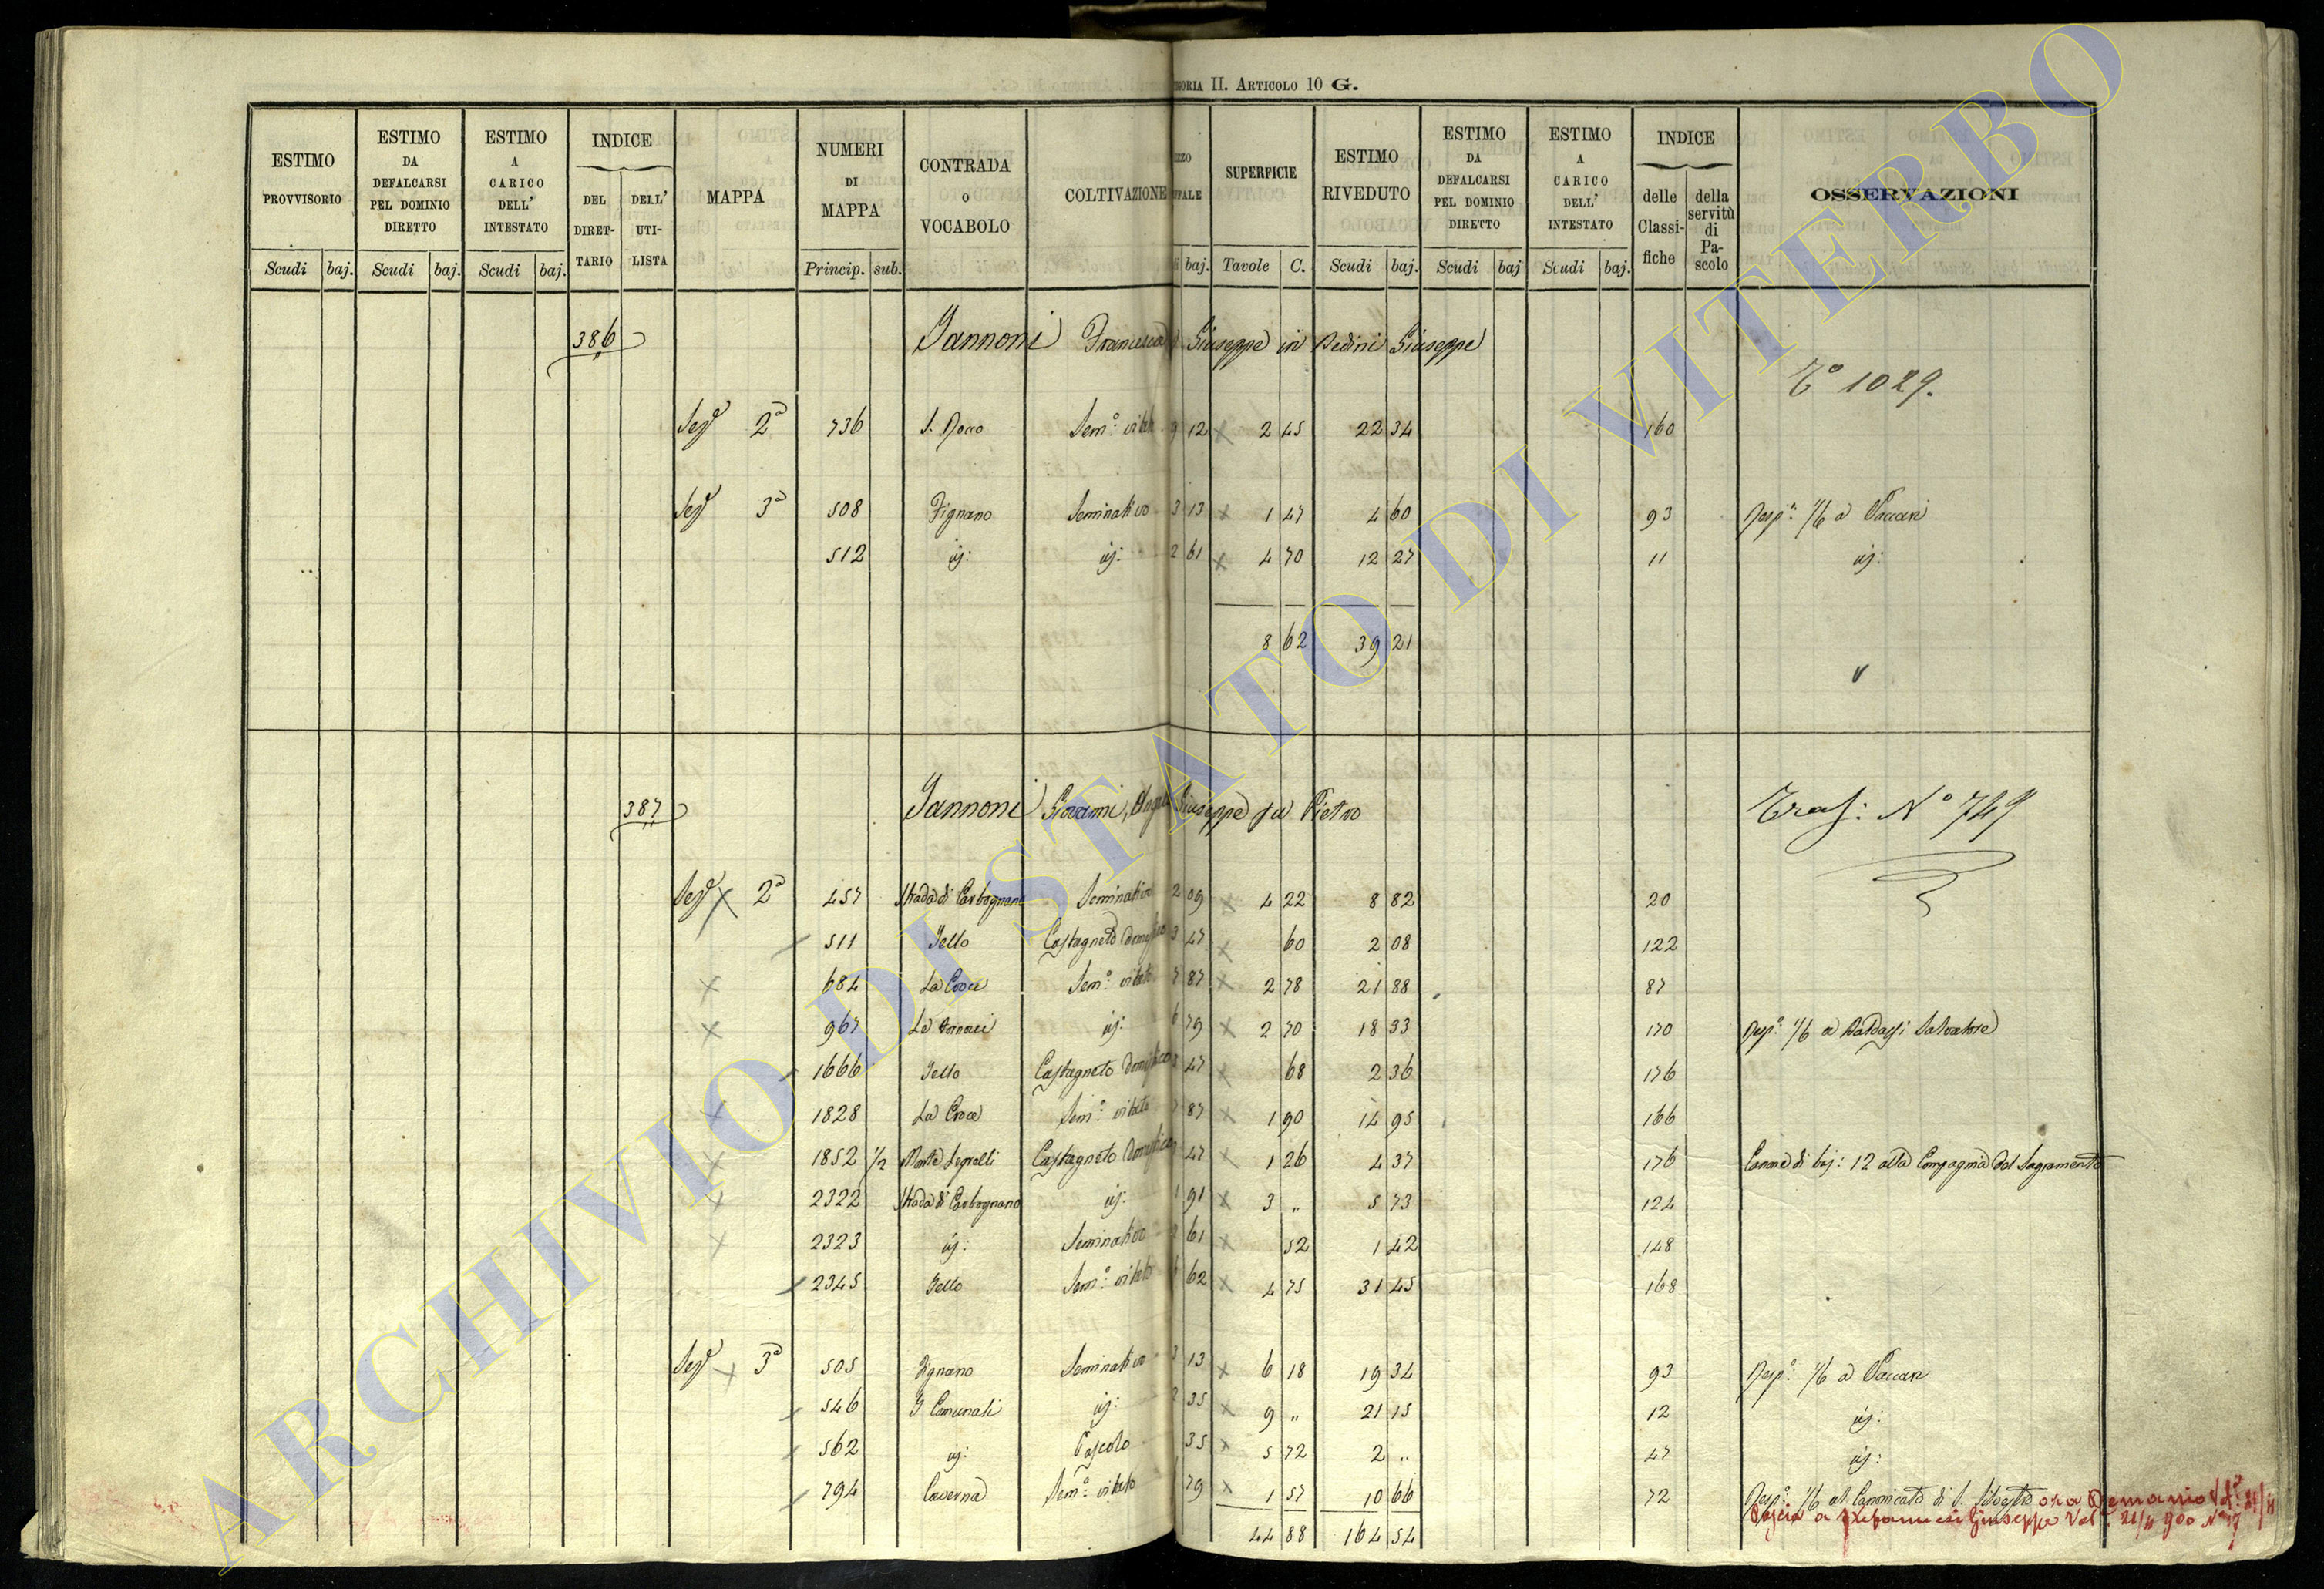 GORIA II. ARTICOLO 10 G.
ESTIMO PROVVISORIO Scudi baj.
ESTIMO DA DEFALCARSI PEL DOMINIO DIRETTO Scudi baj.
ESTIMO A CARICO DELL' INTESTATO Scudi baj.
INDICE DEL DIRET-TARIO DELL' UTI-LISTA
MAPPA
NUMERI DI MAPPA Princip. sub.
CONTRADA o VOCABOLO
COLTIVAZIONE
baj.
SUPERFICIE Tavole C.
ESTIMO RIVEDUTO Scudi baj.
ESTIMO DA DEFALCARSI PEL DOMINIO DIRETTO Scudi baj
ESTIMO A CARICO DELL' INTESTATO Scudi baj.
INDICE delle Classi-fiche della servitù di Pa-scolo
OSSERVAZIONI
386 Jannoni Francesca Giuseppe in Pedini Giuseppe
Tº 1029.
Sezª 2ª 736 S. Rocco Semº: vitato 9 12 2 45 22 34 160
Sezª 3ª 508 Fignano Seminativo 3 13 1 47 4 60 93 Rispª: 1/6 a Vaccari
512 id: id: 2 61 4 70 12 27 11 id:
8 62 39 21
387 Jannoni Giovanni, Giuseppe fu Pietro
Trasf: Nº 749
Sezª 2ª 457 Strada di Carbognano Seminativo 2 09 4 22 8 82 20
511 Jello Castagneto domestico 3 47 60 2 08 122
684 La Croce Semº: vitato 7 87 2 78 21 88 87
967 Le Fornaci id: 6 79 2 70 18 33 170 Rispª: 1/6 a Baldassi Salvatore
1666 Jello Castagneto domestico 3 47 68 2 36 176
1828 La Croce Semº: vitato 7 87 1 90 14 95 166
1852 1/2 Castagneto domestico 3 47 1 26 4 37 176 Canone di baj: 12 alla Compagnia del Sagramento
2322 Strada di Carbognano id: 1 91 3 " 5 73 124
2323 id: Seminativo 2 61 52 1 42 148
2345 Jello Semº: vitato 6 62 4 75 31 45 168
Sezª 3ª 505 Fignano Seminativo 3 13 6 18 19 34 93 Rispª: 1/6 a Vaccari
546 I Comunali id: 2 35 9 " 21 15 12 id:
562 id: Pascolo 35 5 72 2 " 47 id:
794 Caverna Semº: vitato 79 1 57 10 66 72 Rispª: 1/6 al Canonicato di S. Silvestro ora Demanio
a Giuseppe 900
44 88 164 54
ARCHIVIO DI STATO DI VITERBO